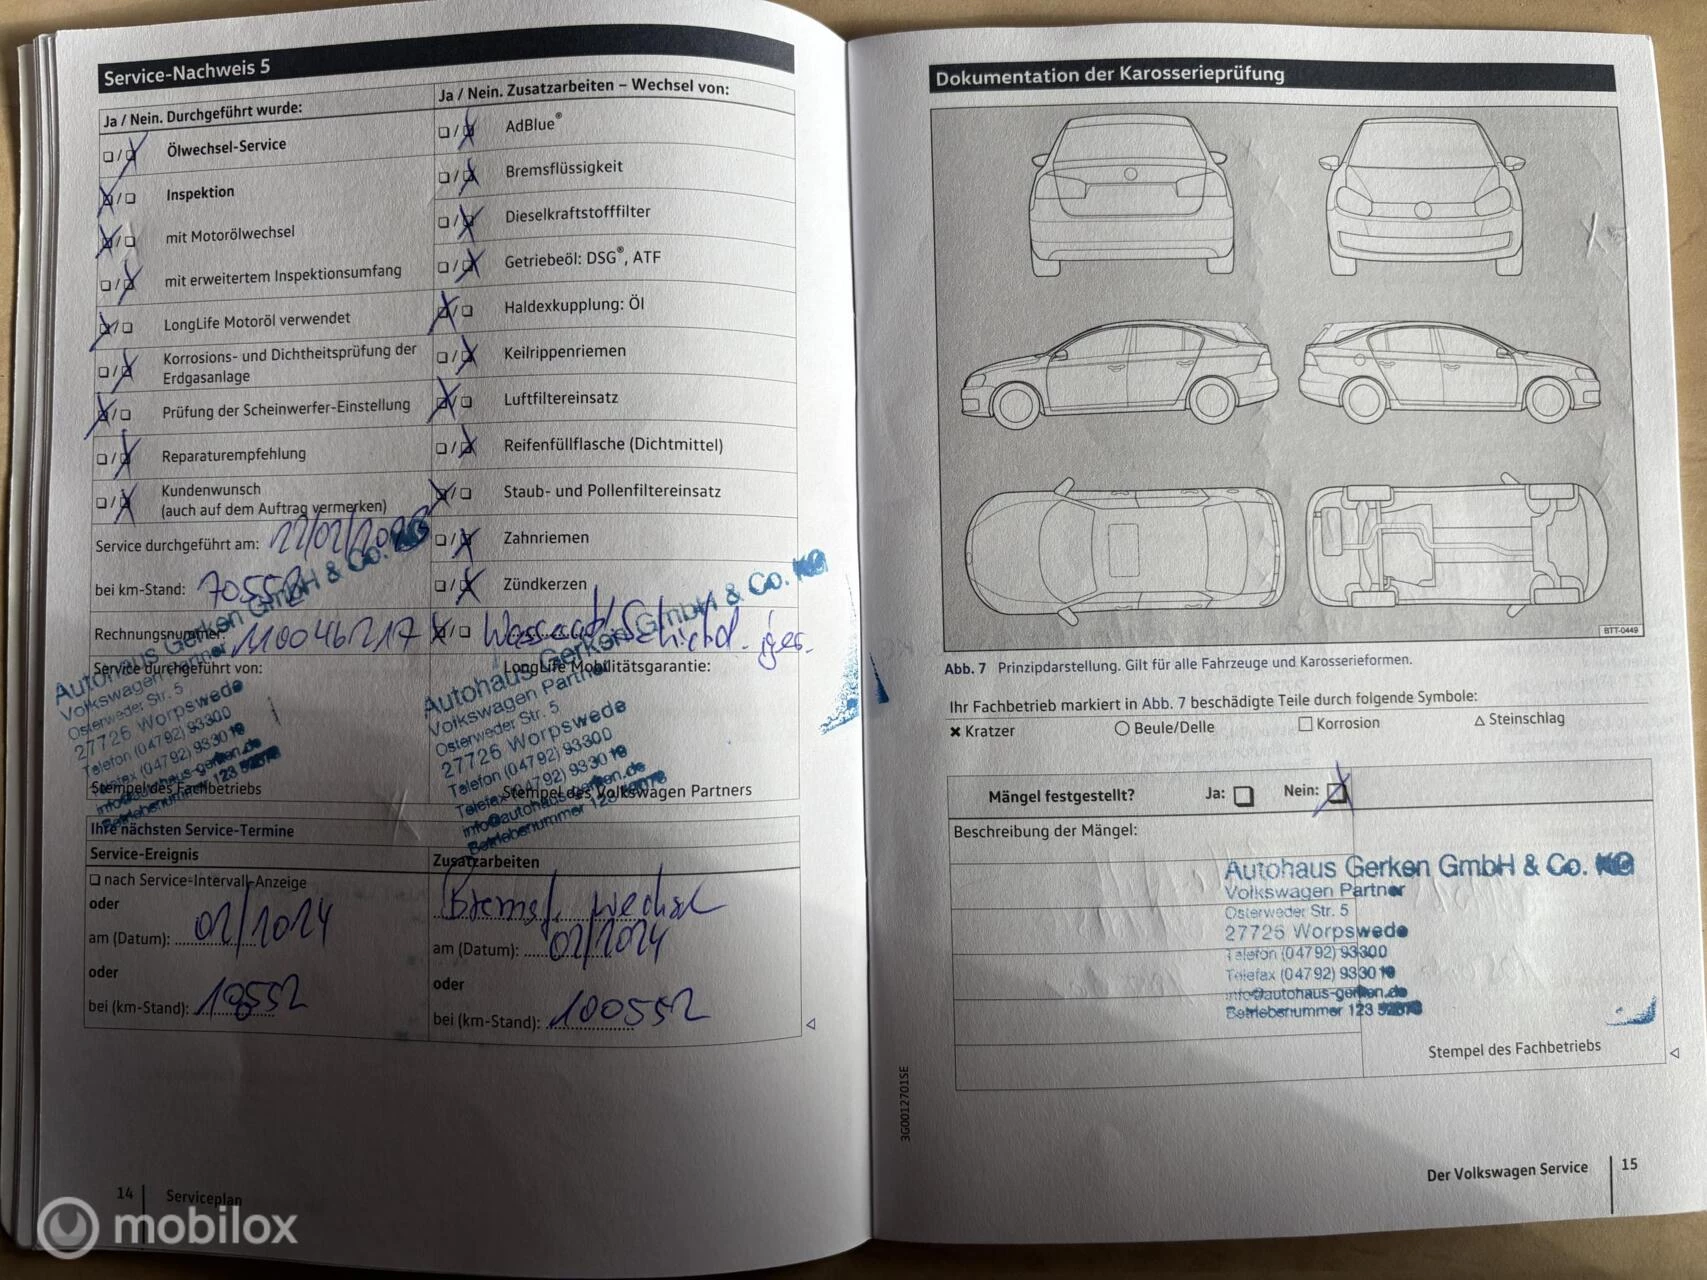 Service-Nachweis 5
Ja / Nein. Durchgeführt wurde:
Ölwechsel-Service
Inspektion
mit Motorölwechsel
mit erweitertem Inspektionsumfang
LongLife Motoröl verwendet
Korrosions- und Dichtheitsprüfung der
Erdgasanlage
Prüfung der Scheinwerfer-Einstellung
Reparaturempfehlung
Kundenwunsch
(auch auf dem Auftrag vermerken)
Service durchgeführt am:
bei km-Stand: 70552
Rechnungsnummer: 110046217
Service durchgeführt von:
Autohaus Gerken GmbH & Co. KG
Volkswagen Partner
Osterweder Str. 5
27726 Worpswede
Telefon (04792) 93300
Telefax (04792) 9330
info@autohaus-gerken.de
Betriebsnummer 123
Stempel des Fachbetriebs
Ja / Nein. Zusatzarbeiten – Wechsel von:
AdBlue®
Bremsflüssigkeit
Dieselkraftstofffilter
Getriebeöl: DSG®, ATF
Haldexkupplung: Öl
Keilrippenriemen
Luftfiltereinsatz
Reifenfüllflasche (Dichtmittel)
Staub- und Pollenfiltereinsatz
Zahnriemen
Zündkerzen
LongLife Mobilitätsgarantie:
Autohaus Gerken GmbH & Co. KG
Volkswagen Partner
Osterweder Str. 5
27726 Worpswede
Telefon (04792) 93300
Telefax (04792) 9330
info@autohaus-gerken.de
Betriebsnummer 123
Stempel des Volkswagen Partners
Ihre nächsten Service-Termine
Service-Ereignis
nach Service-Intervall-Anzeige
oder
am (Datum): 02/2024
oder
bei (km-Stand):
Zusatzarbeiten
Bremsfl. wechsel
am (Datum): 02/2024
oder
bei (km-Stand): 100552
14 Serviceplan
mobilox
Dokumentation der Karosserieprüfung
BTT-0449
Abb. 7 Prinzipdarstellung. Gilt für alle Fahrzeuge und Karosserieformen.
Ihr Fachbetrieb markiert in Abb. 7 beschädigte Teile durch folgende Symbole:
Kratzer Beule/Delle Korrosion Steinschlag
Mängel festgestellt? Ja: Nein:
Beschreibung der Mängel:
Autohaus Gerken GmbH & Co. KG
Volkswagen Partner
Osterweder Str. 5
27726 Worpswede
Telefon (04792) 93300
Telefax (04792) 9330
info@autohaus-gerken.de
Betriebsnummer 123
Stempel des Fachbetriebs
3G0012701SE
Der Volkswagen Service 15